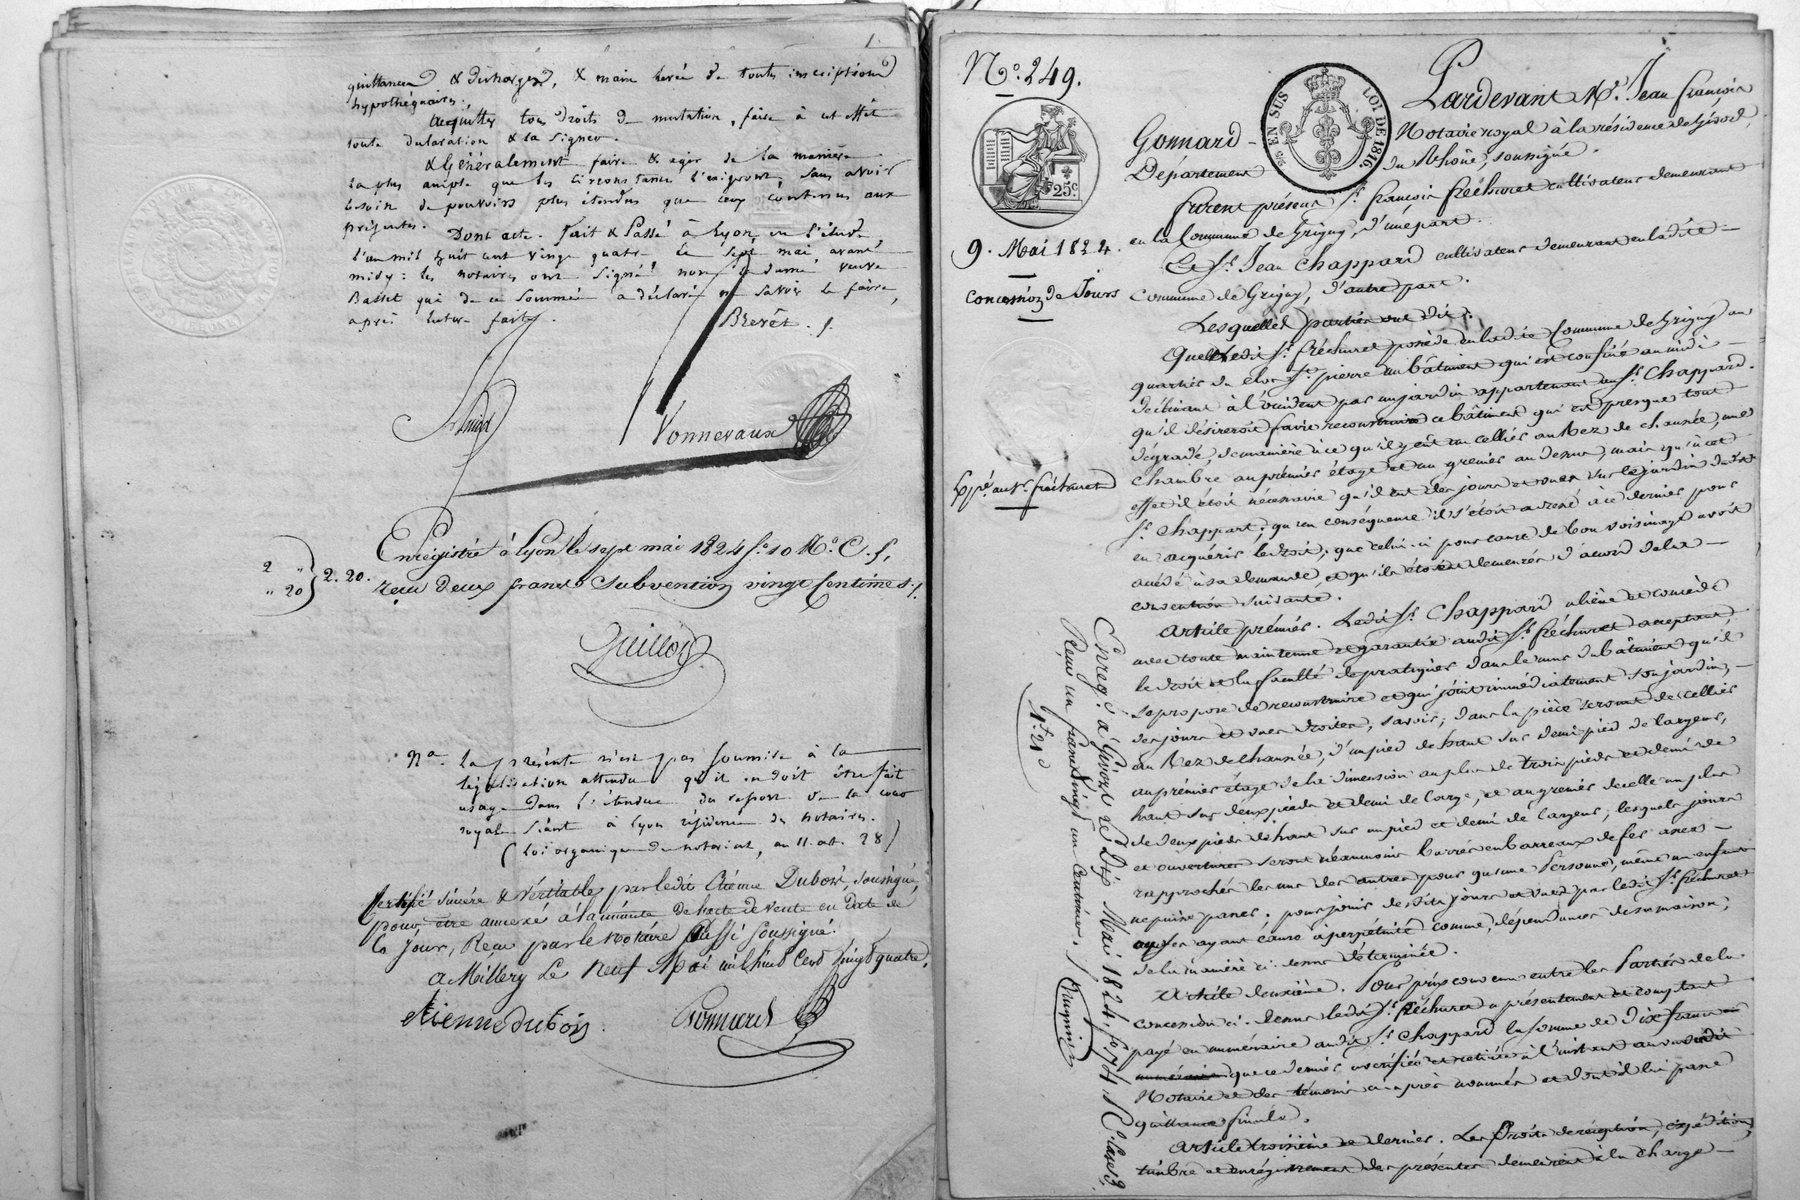 1.
quittances & décharges, & main levée de toutes inscriptions
hypothéquaires;
Acquitter tous droits de mutation, faire à cet effet
toute déclaration & la signer.
& Généralement faire & agir de la manière
la plus ample que les circonstances l'exigeront, sans avoir
besoin de pouvoirs plus étendus que ceux contenus aux
présentes. Dont acte. fait & Passé à Lyon, en l'étude
l'an mil huit cent vingt quatre le sept mai, avant
midy: les notaires ont signé, non la dame veuve
Basset qui de ce sommée a déclaré ne savoir le faire,
après lecture faite.
Brevêt.
Vonnevaux
Enregistré à Lyon le sept mai 1824 fo. 10 No. C. 5,
reçu deux francs subvention vingt Centimes
2 "
" 20
2. 20.
Guillot
Na. La présente n'est pas soumise à la
législation attendu qu'il en doit être fait
usage dans l'étendue du ressort de la cour
royale séant à Lyon résidence du notaire.
(Loi organique du notariat, an 11. art. 28)
Certifié sincère & Véritable par ledit Etienne Dubois, soussigné,
pour être annexé à la minute de l'acte de vente en date de
ce Jour, Reçu par le Notaire aussi soussigné.
a Millery Le Neuf Mai mil huit Cent vingt quatre.
etienne dubois Gonnard
No. 249.
EN SUS
LOI DE 1816.
25c
9. Mai 1824.
Concession de Jours
Expé. au Sr. fréchuret
Pardevant Me. Jean françois
Gonnard - Notaire royal à la résidence de Givors,
Département du Rhône, soussigné.
furent présens Sr. françois fréchuret cultivateur demeurant
en la Commune de Grigny, d'une part.
Et Sr. Jean Chappard cultivateur demeurant en ladite -
Commune de Grigny, d'autre part.
Lesquelles parties ont dit:
Que ledit Sr. fréchuret possède en ladite Commune de Grigny au
quartier du clos St. pierre un bâtiment qui est confiné au midi -
déclinant à l'occident par un jardin appartenant au Sr. Chappard.
qu'il désireroit faire reconstruire ce bâtiment qui est presque tout
dégradé, de manière à ce qu'il y eût un cellier au Rez de chaussée, une
chambre au premier étage et un grenier au dessus, mais qu'à cet
effet il étoit nécessaire qu'il eut des jours et vues sur le jardin dudit
Sr. Chappart; qu'en conséquence il s'étoit adressé à ce dernier pour
en acquérir le droit; que celui-ci pour cause de bon voisinage avoit
accédé à sa demande, et qu'ils étoient demeurés d'accord de la -
convention suivante.
Article prémier. Ledit Sr. Chappard aliène et concède
avec toute maintenue et garantie audit Sr. fréchuret acceptant,
le droit et la faculté de pratiquer dans le mur du bâtiment qu'il
se propose de reconstruire et qui joint immédiatement son jardin, -
des jours et vues droites, savoir; dans la pièce servant de cellier
au Rez de chaussée, d'un pied de haut sur demi pied de largeur,
au prémier étage de la dimension au plus de trois pieds et demi de
haut sur deux pieds et demi de large, et au grenier de celle au plus
de deux pieds de haut sur un pied et demi de largeur; lesquels jours
et ouvertures seront néanmoins barrés en barreaux de fer assez -
rapprochés les uns des autres pour qu'une personne, même un enfant
ne puisse passer. pour jouir desdits jours et vues par ledit Sr. fréchuret
et ses ayant cause à perpétuité comme, dépendances de sa maison,
de la manière ci-dessus déterminée.
Article deuxième. Pour prix convenu entre les Parties de la
concession ci-dessus ledit Sr. fréchuret a présentement et comptant
payé en numéraire audit Sr. Chappard la somme de Dix francs
que ce dernier a vérifiée et retirée à l'instant au vu dudit
Notaire et des témoins ci-après nommés et dont il lui passe
quittance finale.
Article troisième et dernier. Les Droits de réception, expédition,
timbre et enrégistrement des présentes demeurent à la charge -
Enregé. à Givors le Dix Mai 1824. fo. 74. Ro. Cases 3.
Reçu un franc vingt un Centimes.
1f. 21c